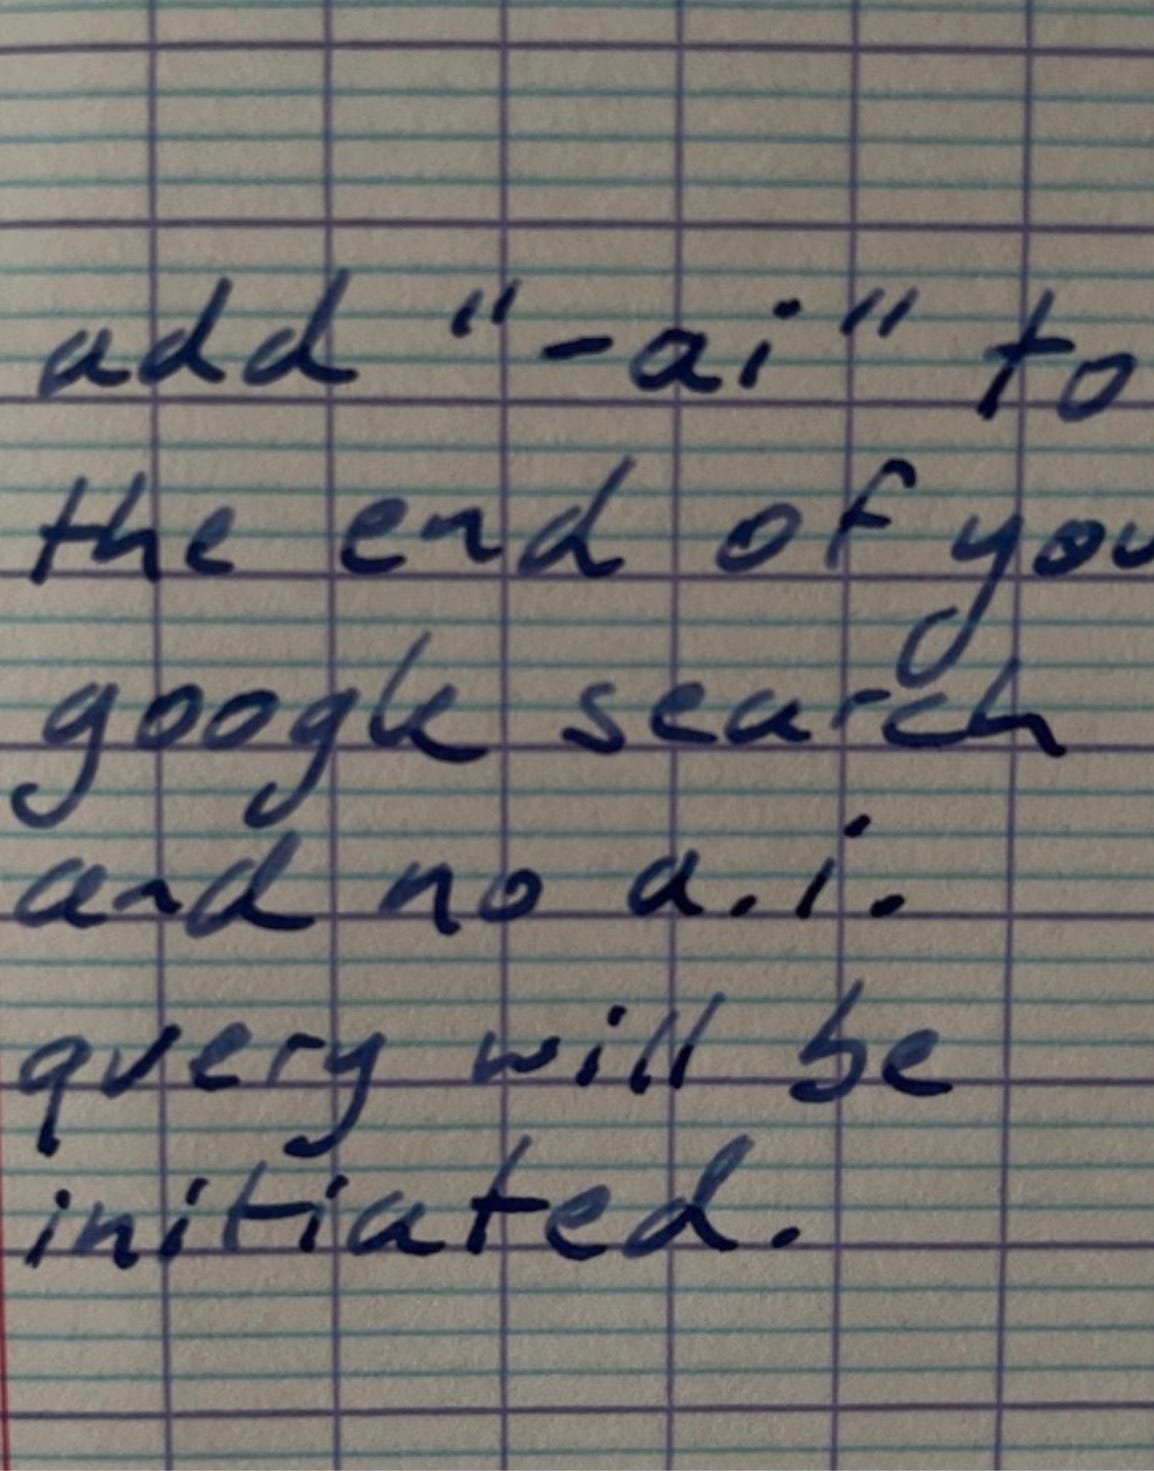 add "-ai" to
the end of you
google search
and no a.i.
query will be
initiated.